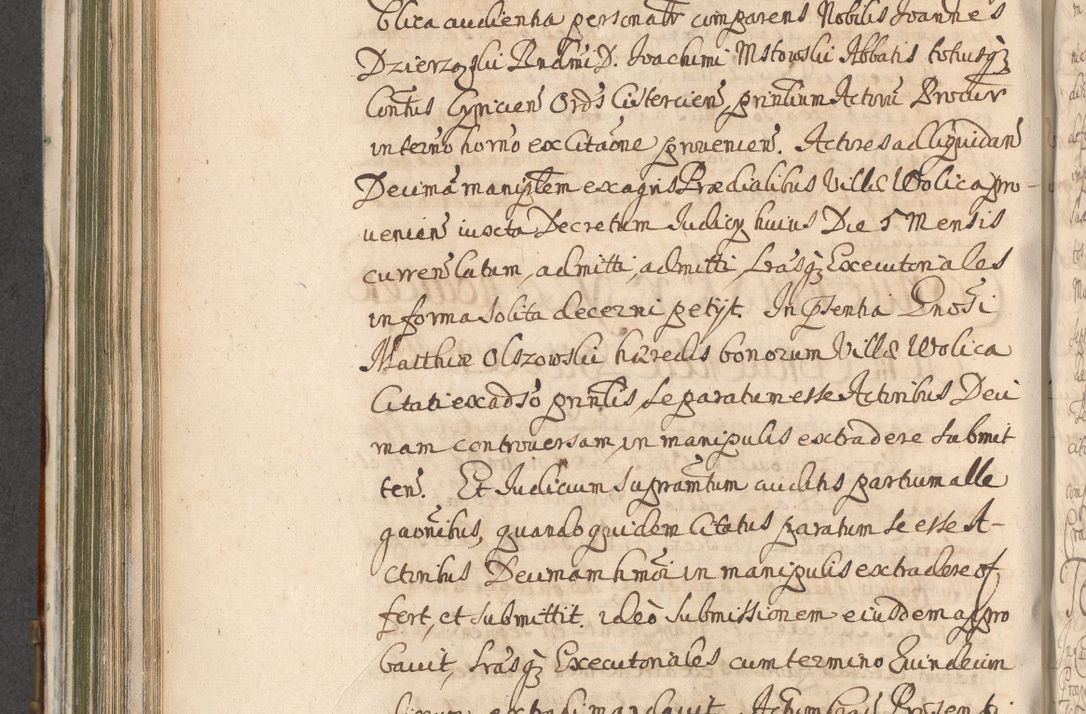 blica audientia personalr comparens Nobilis Joannes
Dzierzgski Rndmi D. Joachimi Mstowski Abbatis totiusq3
Contus Cyricien Ords Cistercien, prinlium Actoru Procur
in termo horno ex Citaone provenien. Actores ad liquidan
Decima maniplem ex agris Prædialibus Villæ Wolica pro-
venien iuxta Decretum Judicy huius Die 5 Mensis
curren latum, admitti, admitti, Lrasq3 Executoriales
in forma solita decerni petijt. In psentia Gnosi
Matthiæ Olszowski hæredis bonorum Villæ Wolica
Citati ex adso prinlis, se paratum esse Actoribus Deci
mam controversam in manipulis extradere submit
ten. Et Judicium supramtum auditis partium alle
gaonibus, quandoquidem Citatus paratum se esse A-
ctoribus Decimam hmoi in manipulis extradere of
fert, et submittit. ideò submissionem eiusdem appro
bavit, Lrasq3 Executoriales cum termino Quindecim